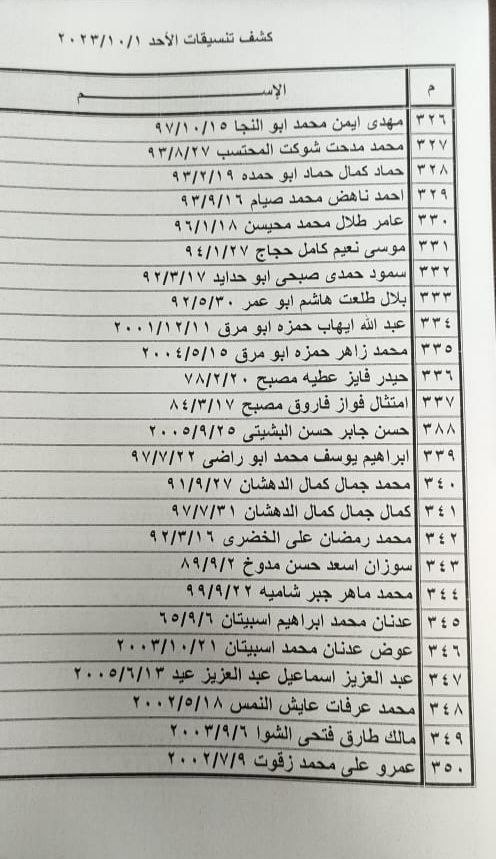 كشف تنسيقات الأحد ٢٠٢٣/١٠/١
م الإســـــــــــم
٣٢٦ مهدى ايمن محمد ابو النجا ٩٧/١٠/١٥
٣٢٧ محمد مدحت شوكت المحتسب ٩٣/٨/٢٧
٣٢٨ حماد كمال حماد ابو حمده ٩٣/٢/١٩
٣٢٩ احمد ناهض محمد صيام ٩٣/٩/١٦
٣٣٠ عامر طلال محمد محيسن ٩٦/١/١٨
٣٣١ موسى نعيم كامل حجاج ٩٤/١/٢٧
٣٣٢ سمود حمدى صبحى ابو حدايد ٩٢/٣/١٧
٣٣٣ بلال طلعت هاشم ابو عمر ٩٢/٥/٣٠
٣٣٤ عبد الله ايهاب حمزه ابو مرق ٢٠٠١/١٢/١١
٣٣٥ محمد زاهر حمزه ابو مرق ٢٠٠٤/٥/١٥
٣٣٦ حيدر فايز عطيه مصبح ٧٨/٢/٢٠
٣٣٧ امتثال فواز فاروق مصبح ٨٤/٣/١٧
٣٨٨ حسن جابر حسن البشيتى ٢٠٠٥/٩/٢٥
٣٣٩ ابراهيم يوسف محمد ابو راضى ٩٧/٧/٢٢
٣٤٠ محمد جمال كمال الدهشان ٩١/٩/٢٧
٣٤١ كمال جمال كمال الدهشان ٩٧/٧/٣١
٣٤٢ محمد رمضان على الخضرى ٩٢/٣/١٦
٣٤٣ سوزان اسعد حسن مدوخ ٨٩/٩/٢
٣٤٤ محمد ماهر جبر شاميه ٩٩/٩/٢٢
٣٤٥ عدنان محمد ابراهيم اسبيتان ٦٥/٩/٦
٣٤٦ عوض عدنان محمد اسبيتان ٢٠٠٣/١٠/٢١
٣٤٧ عبد العزيز اسماعيل عبد العزيز عيد ٢٠٠٥/٦/١٣
٣٤٨ محمد عرفات عايش النمس ٢٠٠٢/٥/١٨
٣٤٩ مالك طارق فتحى الشوا ٢٠٠٣/٩/٦
٣٥٠ عمرو على محمد زقوت ٢٠٠٢/٧/٩